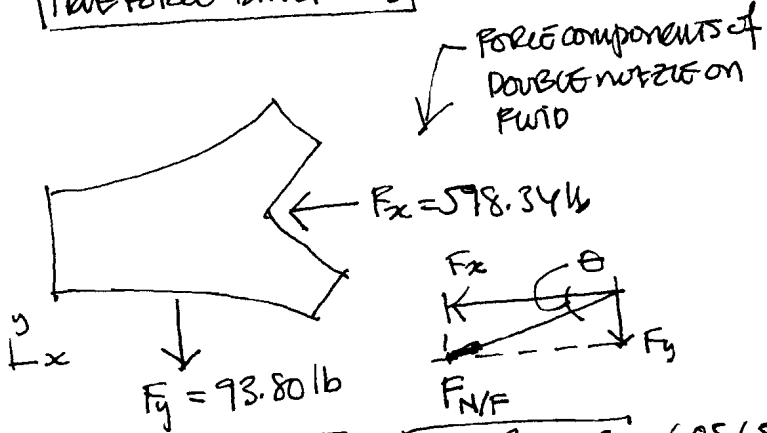 FORCE COMPONENTS of
DOUBLE NOZZLE ON
FLUID
Fx = 598.34 lb
Fx θ
Fy
y
x
Fy = 93.80 lb
F N/F